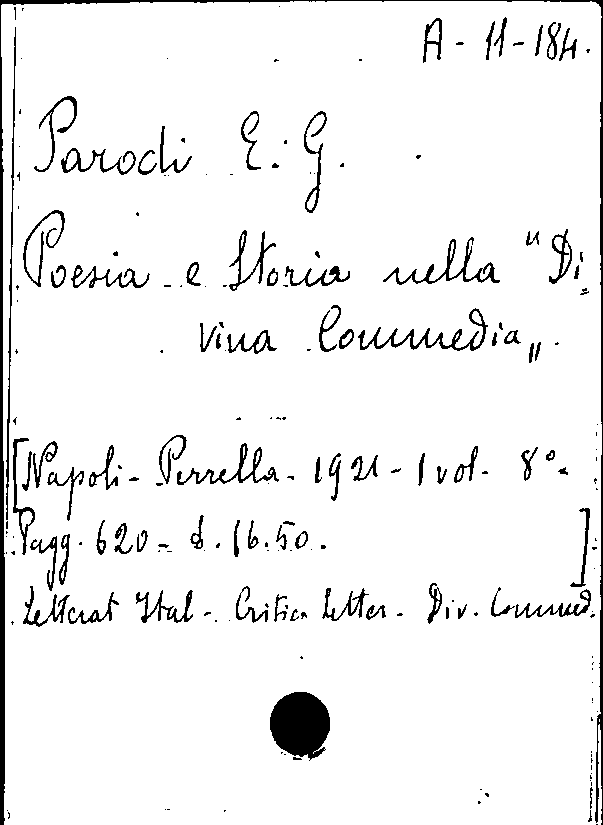 A-11-184.
Parodi E. G.
Poesia e Storia nella "Di=
vina Commedia".
[Napoli - Perrella - 1921 - 1 vol. 8°-
Pagg. 620 - £. 16.50.]
Letterat Ital - Critica Letter - Div. Commed.